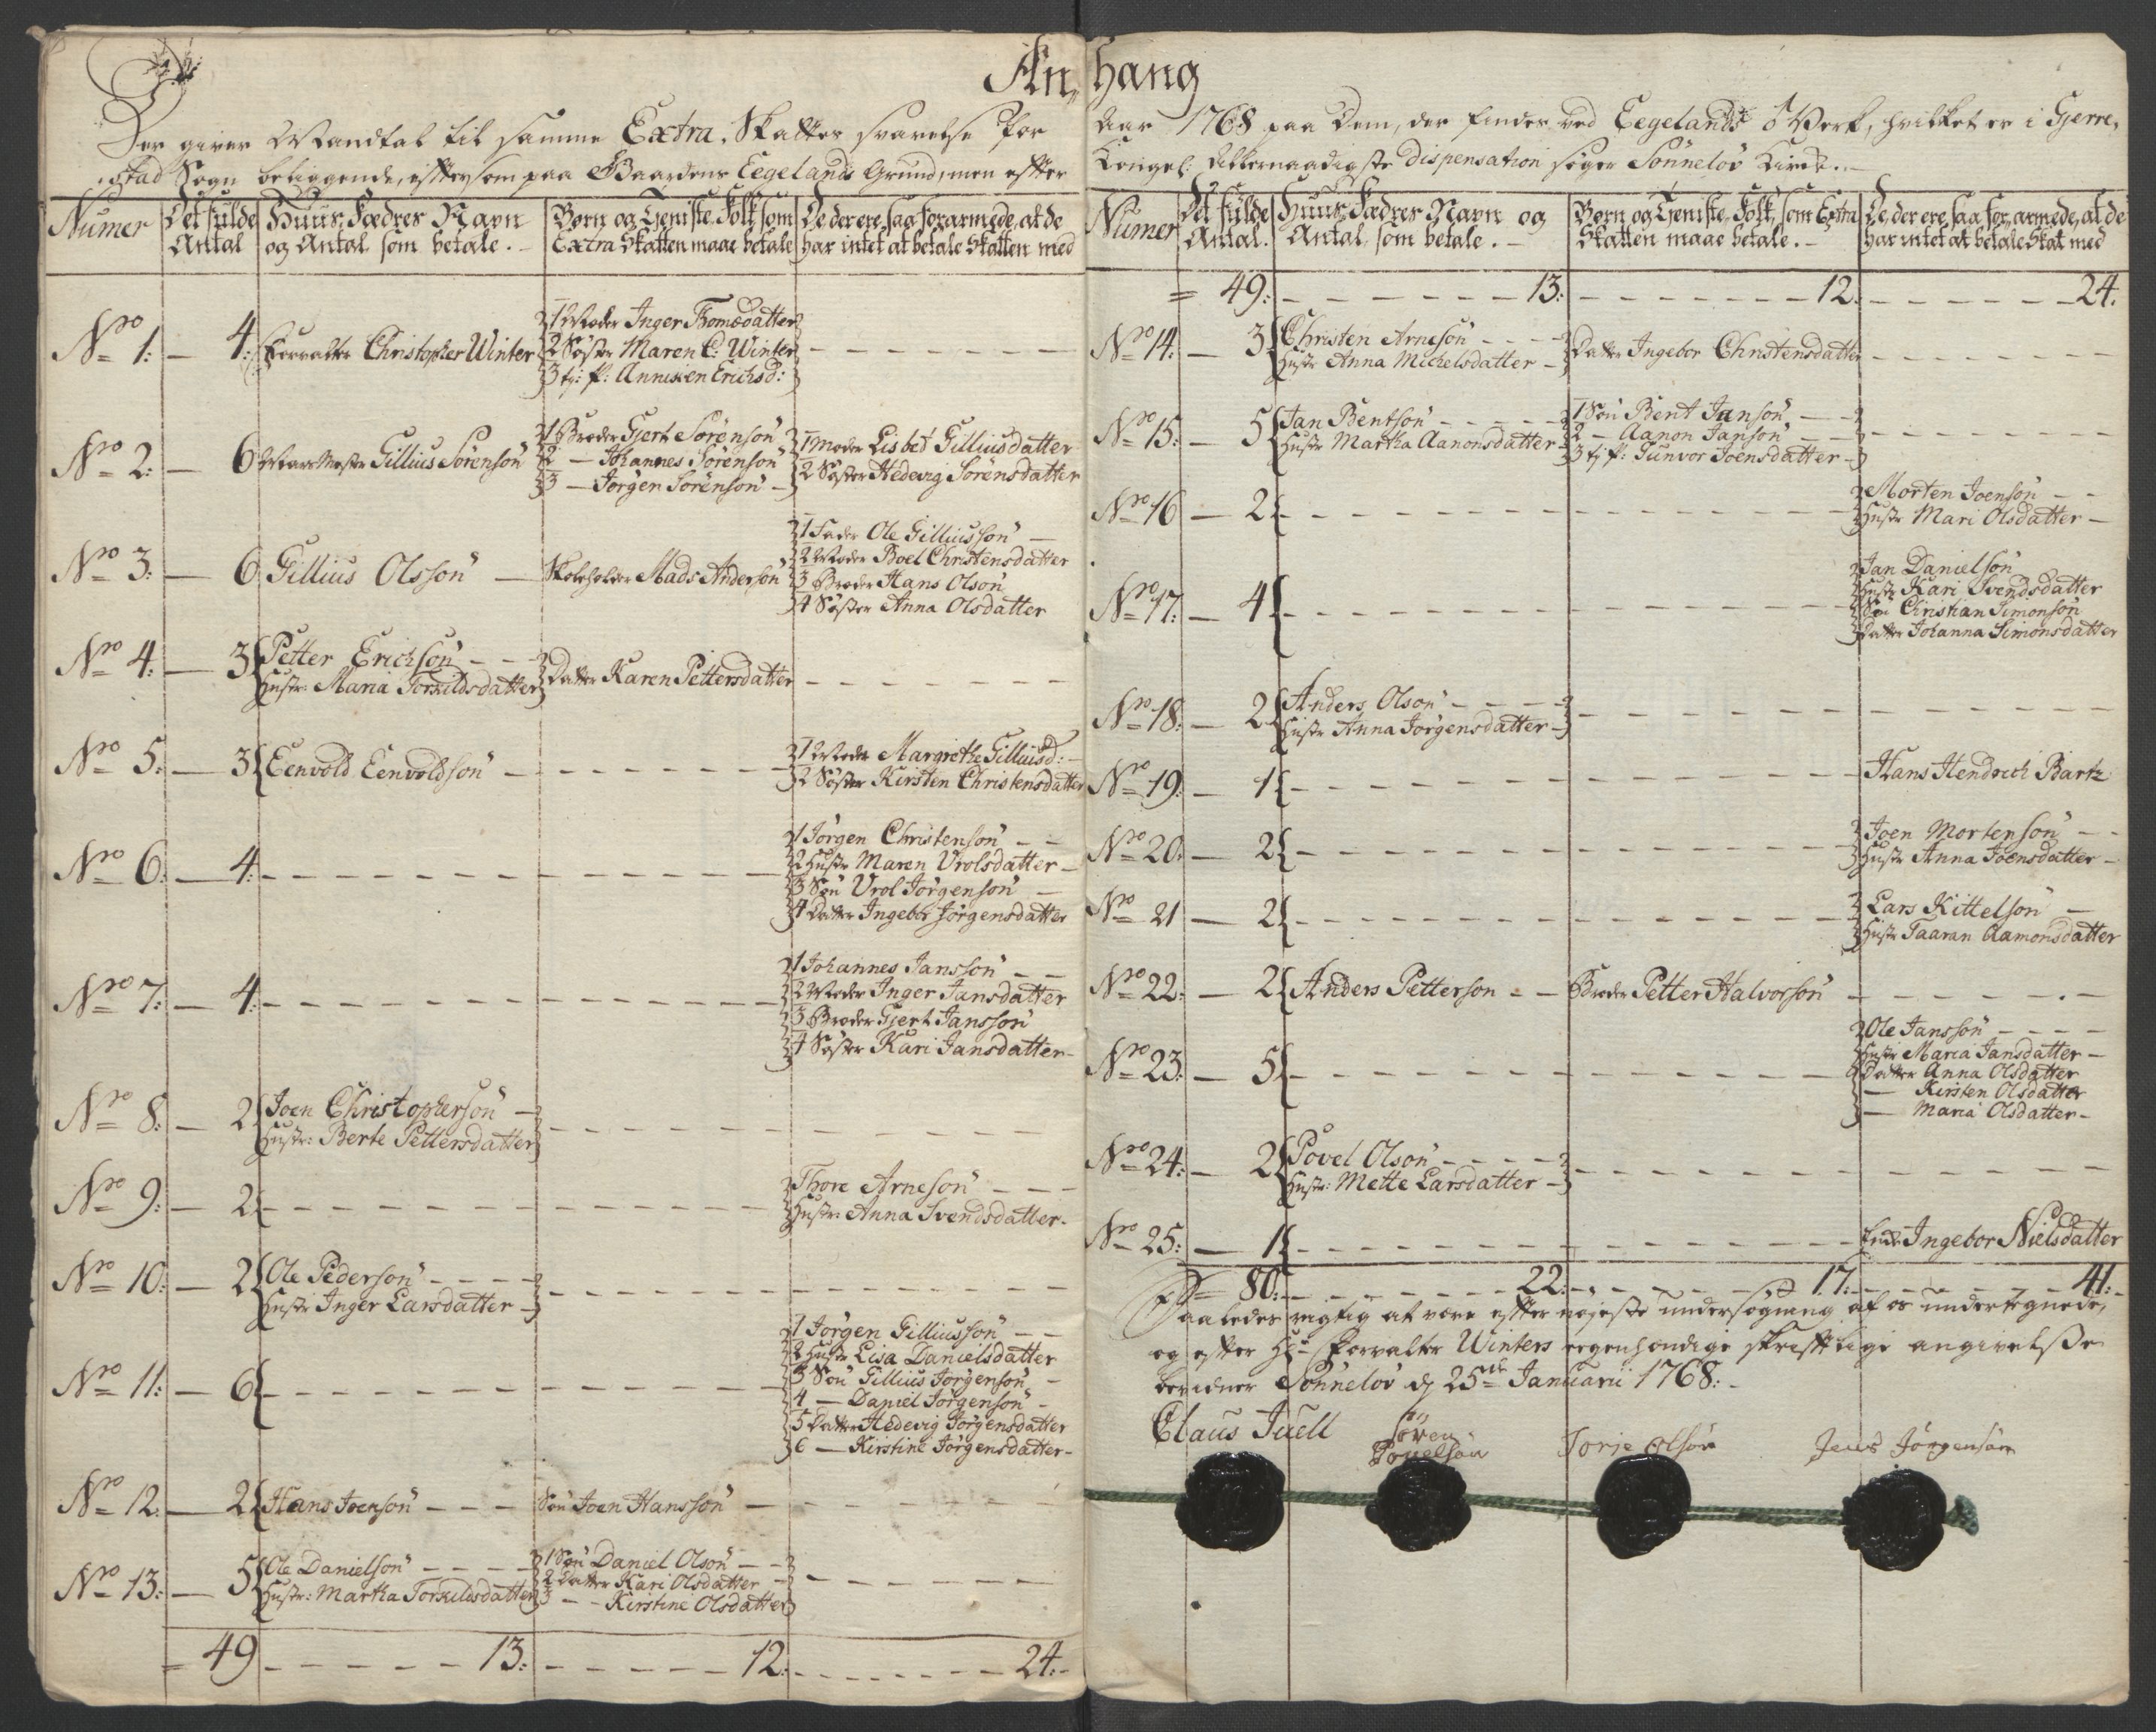 An„hang
Der giver Mandtal til samme Extra Skattes svarelse for
Aar 1768 paa Dem, der findes ved Eegelands Verk, hvilket er i Gjerre„
„stad Sogn beliggende, eftersom paa Gaardens Eegelands Grund, men efter
Kongel: Allernaadigste Dispensation søger Sønneløv Kirke.
Numer
Det fulde Antal
Huus-Fædres Navn
og Antal som betale.
Børn og Tjeniste-Folk, som
Extra Skatten maae betale
De der ere saa forarmede, at de
har intet at betale Skatten med
Nro 1: — 4: Forvalter Christopher Winter
1 Moder Inger Thomædatter
2 Søster Maren C: Winter
3 tj: p: Anniken Erichsd:
Nro 2: — 6 Gillius Sørenson
1 Broder Gjert Sørenson
2 — Johannes Sørenson
3 — Jørgen Sørenson
1 Moder Lisbet Gilliusdatter
2 Søster Hedevig Sørensdatter
Nro 3: — 6 Gillius Olsson
Skoleholder Mads Anderson
1 Fader Ole Gilliusson
2 Moder Boel Christensdatter
3 Broder Hans Olson
4 Søster Anna Olsdatter
Nro 4: — 3 Petter Erichson
Hustr: Maria Torkildsdatter
Datter Karen Pettersdatter
Nro 5: — 3 Eenvold Eenvoldson
1 Moder Margrethe Gilliusd:
2 Søster Kirsten Christensdatter
Nro 6: — 4:
1 Jørgen Christenson
2 Hustr Maren Vrolsdatter
3 Søn Vrol Jørgenson
4 Datter Ingebor Jørgensdatter
Nro 7: — 4:
1 Johannes Jansson
2 Moder Inger Jansdatter
3 Broder Gjert Jansson
4 Søster Kari Jansdatter
Nro 8: — 2 Joen Christopherson
Hustr: Berte Pettersdatter
Nro 9: — 2
Thore Arneson
Hustr: Anna Svendsdatter
Nro 10: — 2 Ole Pederson
Hustr Inger Larsdatter
Nro 11: — 6
1 Jørgen Gilliusson
2 Hustr Lisa Danielsdatter
3 Søn Gillius Jørgenson
4 — Daniel Jørgenson
5 Datter Hedevig Jørgensdatter
6 — Kirstine Jørgensdatter
Nro 12: — 2 Hans Joenson
Søn Joen Hansson
Nro 13: — 5 Ole Danielson
Hustr: Martha Torkildsdatter
1 Søn Daniel Olson
2 Datter Kari Olsdatter
3 — Kirstine Olsdatter
= 49 13: 12: 24:
Numer
Det fulde Antal.
Huus-Fædres Navn og
Antal som betale.
Børn og Tjeniste-Folk, som Extra
Skatten maae betale.
De, der ere saa forarmede, at de
har intet at betale Skat med
= 49: 13: 12: 24.
Nro 14: — 3 Christen Arneson
Hustr Anna Michelsdatter
Datter Ingebor Christensdatter
Nro 15: — 5 Jan Bentson
Hustr Martha Aanonsdatter
1 Søn Bent Janson
2 — Aanon Janson
3 tj: p: Gunvor Joensdatter
Nro 16 — 2
Morten Joenson
Hustr Mari Olsdatter
Nro 17: — 4
Jan Danielson
Hustr Kari Svendsdatter
Søn Christian Simonson
Datter Johanna Simonsdatter
Nro 18: — 2 Anders Olson
Hustr Anna Jørgensdatter
Nro 19: — 1
Hans Hendrich Bartz
Nro 20: — 2
Joen Mortenson
Hustr Anna Joensdatter
Nro 21 — 2
Lars Kittelson
Hustr Taaran Aamonsdatter
Nro 22: — 2 Anders Petterson
Broder Petter Halvorson
Nro 23: — 5
Ole Jansson
Hustr Maria Jansdatter
Datter Anna Olsdatter
— Kirsten Olsdatter
— Maria Olsdatter
Nro 24: — 2 Povel Olson
Hustr: Mette Larsdatter
Nro 25: — 1
Enke Ingebor Nielsdatter
= 80: 22: 17: 41:
Saaledes rigtig at være efter nøjeste undersøgning af os undertegnede,
og efter Hr Forvalter Winters egenhændige skriftlige angivelse
bevidner Sønneløv d 25de Januarii 1768:
Claus Juell
Søren
Povelsøn
Torje Olsøn
Jens Jørgensøn